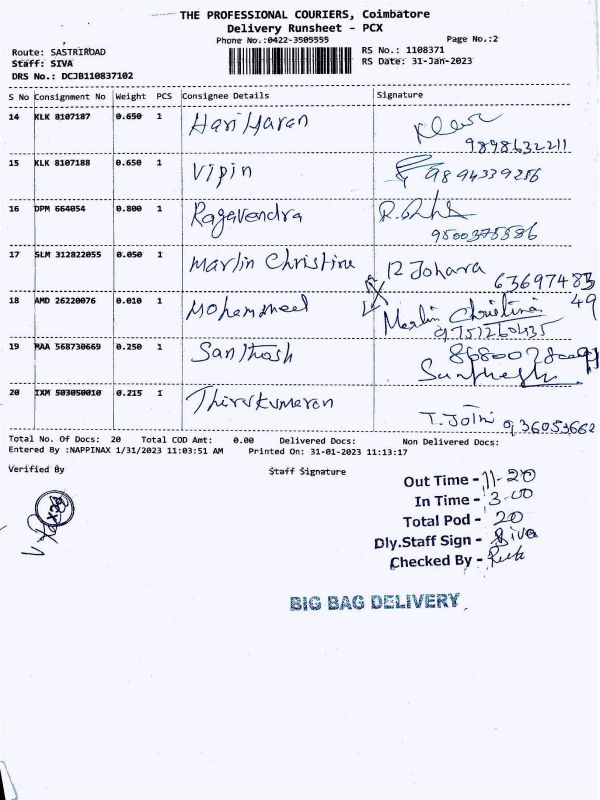 THE PROFESSIONAL COURIERS, Coimbatore
Delivery Runsheet - PCX
Phone No.:0422-3505555 Page No.:2
Route: SASTRIROAD RS No.: 1108371
Staff: SIVA RS Date: 31-Jan-2023
DRS No.: DCJB110837102
S No Consignment No Weight PCS Consignee Details Signature
14 KLK 8107187 0.650 1 Hari Haran
9898632211
15 KLK 8107188 0.650 1 Vipin 9894339256
16 DPM 664054 0.800 1 Ragavendra
9500375586
17 SLM 312822055 0.050 1 Marlin Christine R Johara 63697483
49
18 AMD 26220076 0.010 1 Mohammeed Merlin Christina
9751260435
19 MAA 568730669 0.250 1 Santhosh
Santhosh
20 IXM 503050010 0.215 1 Thirukumaran
T. Jothi 936053662
Total No. Of Docs: 20 Total COD Amt: 0.00 Delivered Docs: Non Delivered Docs:
Entered By :NAPPINAX 1/31/2023 11:03:51 AM Printed On: 31-01-2023 11:13:17
Verified By Staff Signature
Out Time - 11-20
In Time - 3.00
Total Pod - 20
Dly.Staff Sign - Siva
Checked By -
BIG BAG DELIVERY